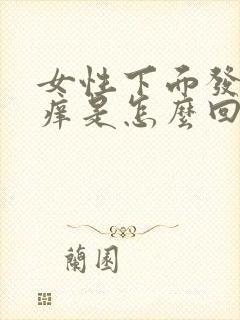 女性下而發
痒是怎麼回
蘭園